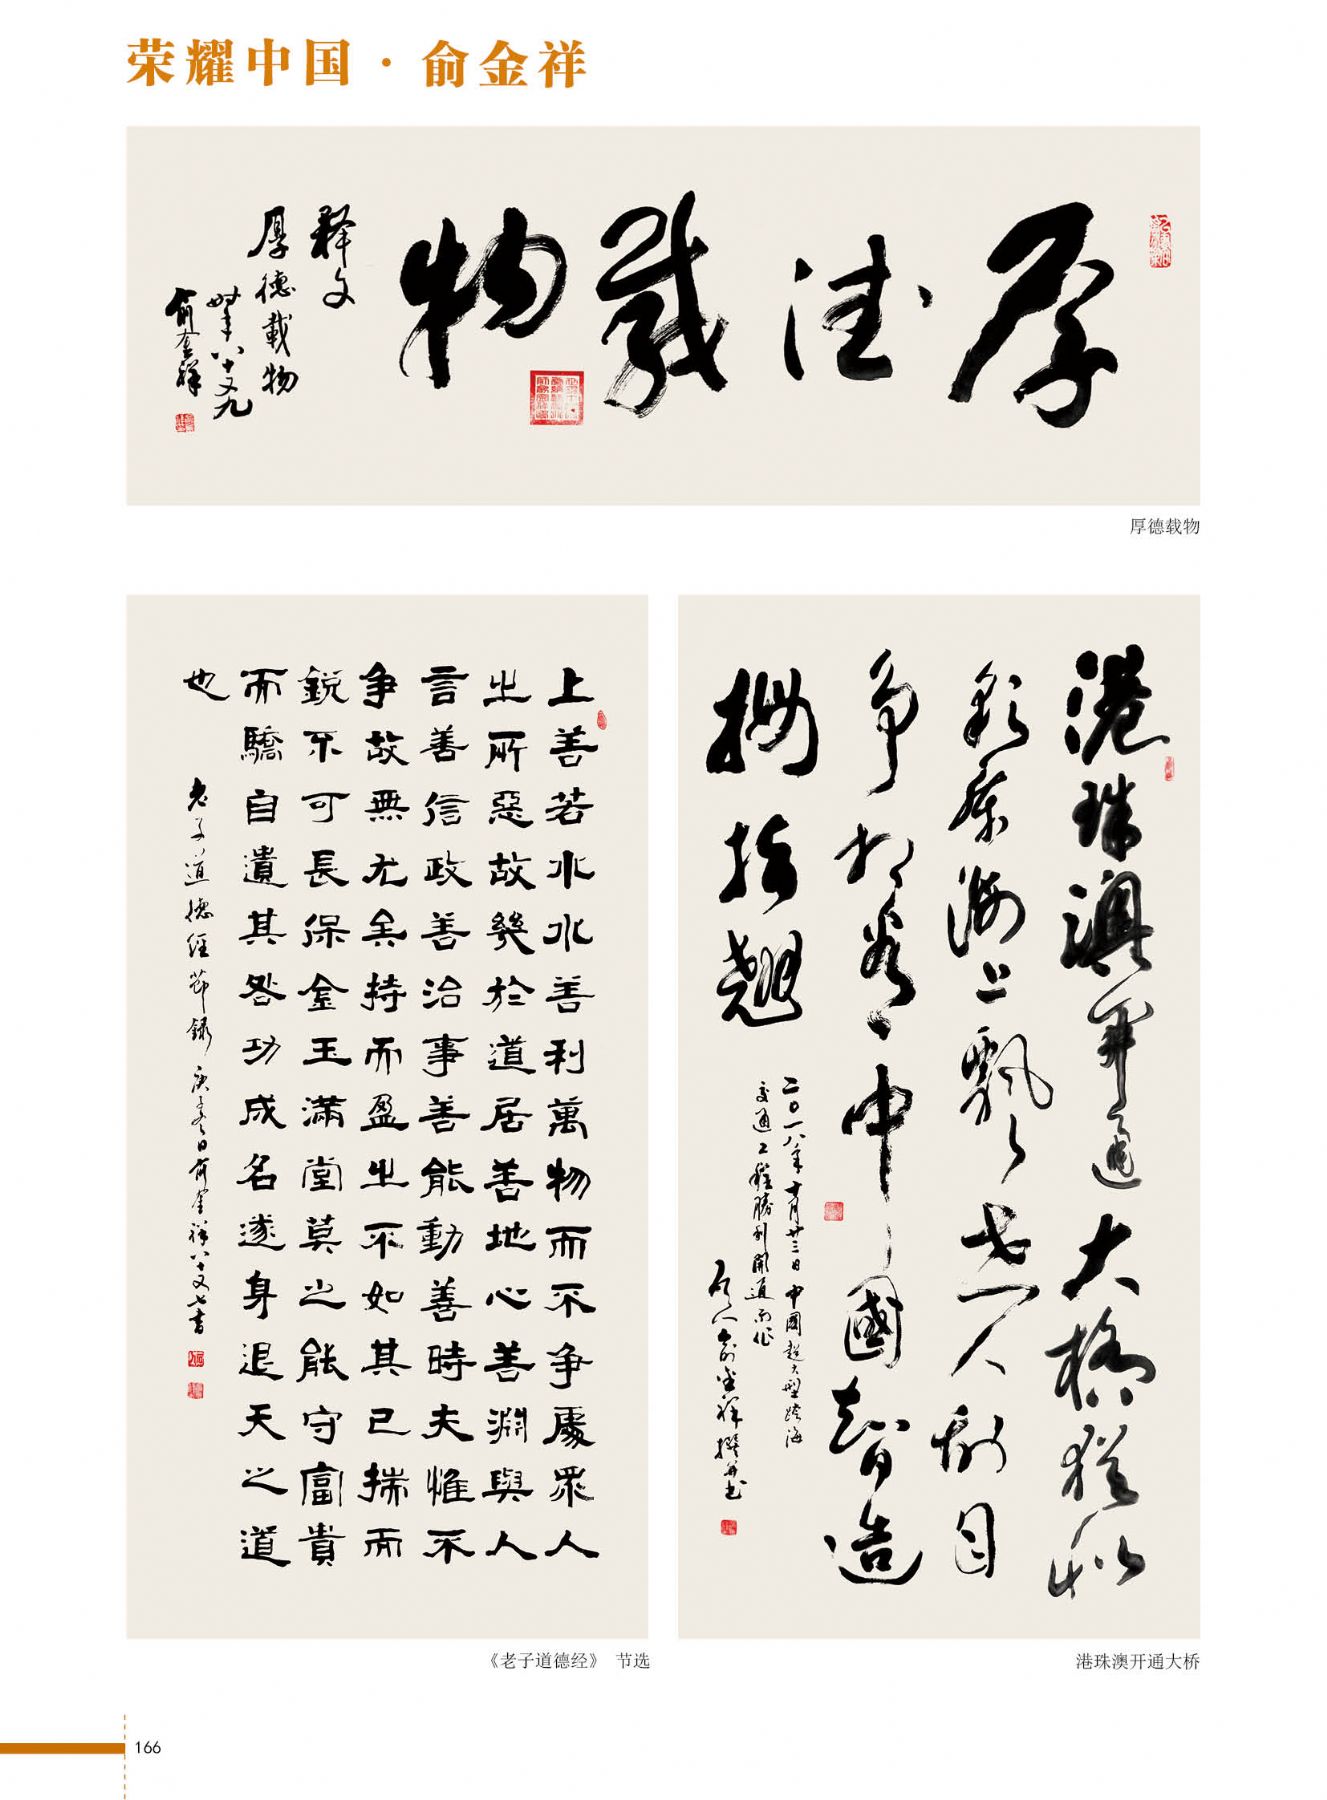 荣耀中国·俞金祥
厚德载物
释文
厚德載物
时年八十又九
俞金祥
厚德载物
上善若水水善利萬物而不争處眾人
之所惡故幾於道居善地心善淵與人
言善信政善治事善能動善時夫惟不
争故無尤矣持而盈之不如其已揣而
銳不可長保金玉滿堂莫之能守富貴
而驕自遺其咎功成名遂身退天之道
也
老子道德經節録 庚子冬日俞金祥八十又七書
《老子道德经》 节选
港珠澳開通大橋猶似
彩練海上飄世人刮目
争相看中國智造
拇指翹
二〇一八年十月廿三日中國超大型跨海
交通工程勝利開通而作
俞金祥撰并书
港珠澳开通大桥
166